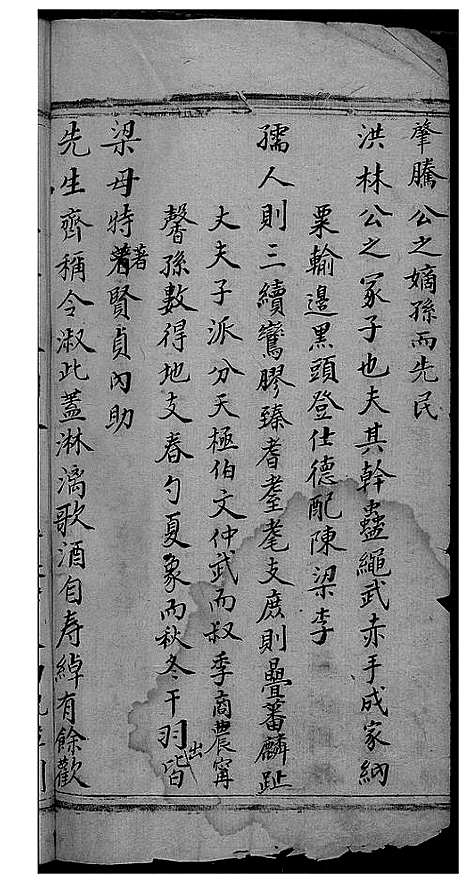 肇騰公之嫡孫而先民
洪林公之冢子也夫其幹蠱繩武赤手成家納
粟輸邊黑頭登仕德配陳梁李
孺人則三續鸞膠臻耆耋耄支庶則疊蕃麟趾
丈夫子派分天極伯文仲武而叔季商農甯
馨孫數得地支春勺夏象而秋冬干羽皆出
梁母特著著賢貞內助
先生齊稱令淑此蓋淋漓歌酒自寿綽有餘歡